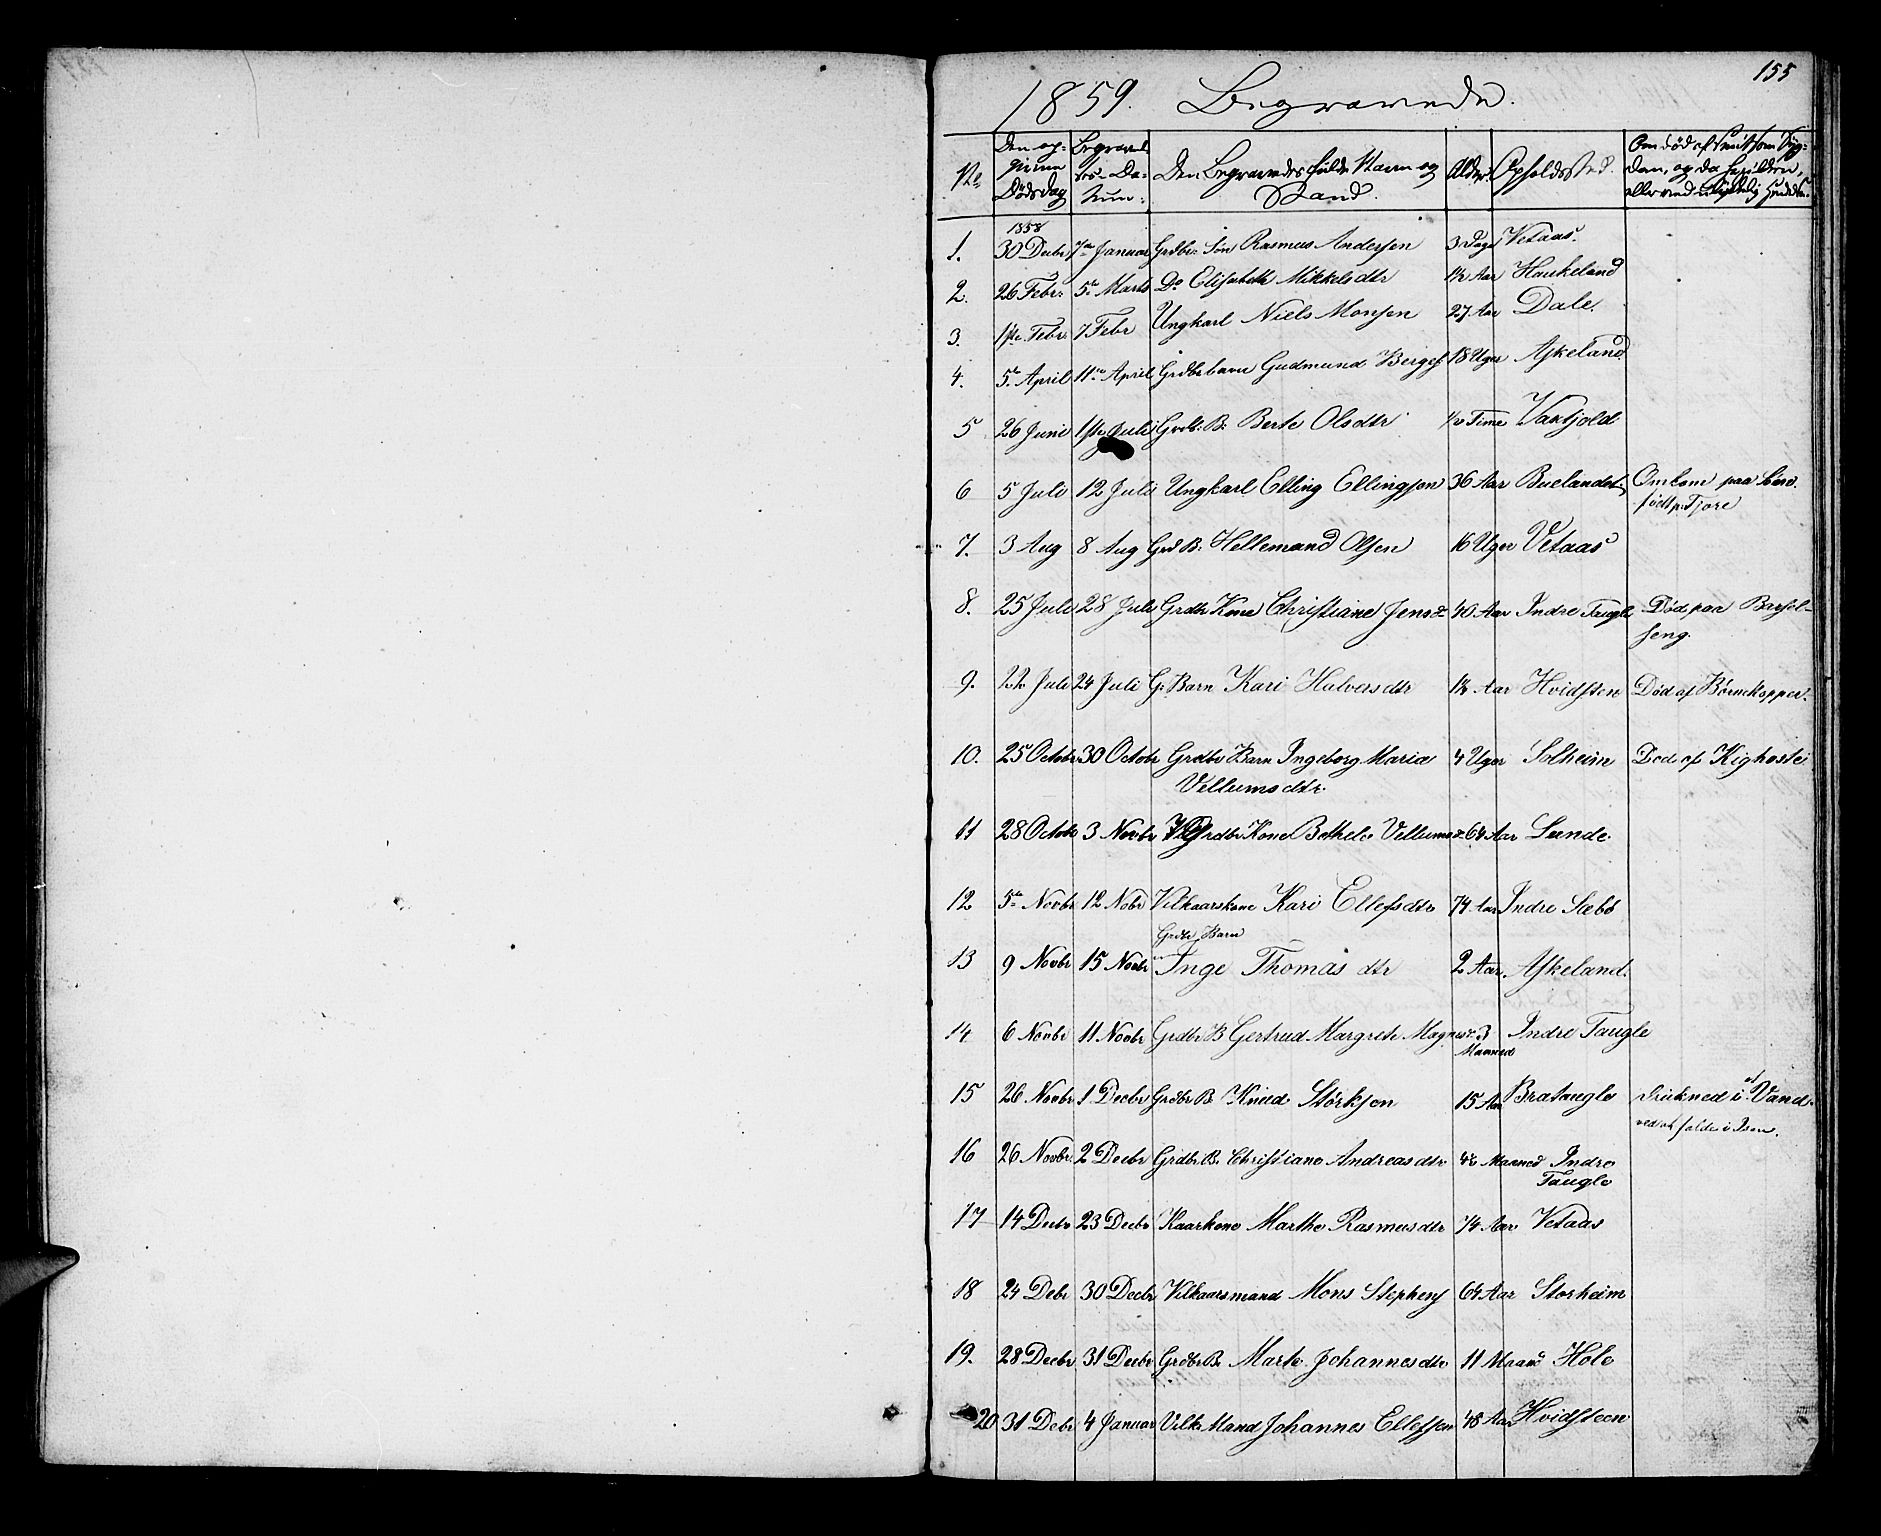 155
1859. Begravede.
No. Den opgivne Dødsdag Begravelses-Datum. Den Begravedes fulde Navn og Stand. Alder. Opholdssted. Om død af smitsom Sygdom, og da hvilken, eller ved ulykkelig Hændelse.
1858
1. 30 Decbr 7de Januar Grdbr. Søn Rasmus Andersen 3 Dage Vetaas.
2. 26 Febr. 5te Marts Do Elisabeth Mikkelsdtr 1½ Aar Haukeland
3. 1ste Febr. 7 Febr Ungkarl Niels Monsen 27 Aar Dale.
4. 5te April 11te April Grdbr barn Gudmund Berges 18 Uger Askeland
5 26 Juni 1ste Juli Grdb. B. Berte Olsdtr ½ Time
6 5 Juli 12 Juli Ungkarl Elling Ellingsen 36 Aar Buelandet Omkom paa Søen.
født p. Fjøre
7. 3 Aug 8 Aug Grd B. Hellemand Olsen 16 Uger Vetaas
8. 25 Juli 28 Juli Grdbr Kone Christiane Jensd 40 Aar Indre Taugle Død paa Barsel-
seng.
9. 22 Juli 24 Juli G. Barn Kari Halvorsdtr 1½ Aar Hvidsten Død af Børnekopper.
10. 25 Octobr 30 Octobr Grdbr Barn Ingeborg Maria 4 Uger Solheim Død af Kighoste
Vellumsdtr.
11 28 Octobr 3 Novbr Grdbr Kone Bethele Vellumsd 64 Aar Lunde.
12 5te Novbr 12 Nobr Vilkaarskone Kari Ellefsdtr 74 Aar Indre Sæbø
Grdbr Barn
13 9 Novbr 15 Novbr Inge Thomasdtr 2 Aar. Askeland.
14 6 Novbr 11 Novbr Grdbr B Gertrud Margrete Magnesd 3 Indre Taugle
Maaned
15 26 Novbr 1 Decbr Grdbr B. Knud Størksen 15 Aar Brataugle Drukned i et Vand
ved at falde i Isen.
16 26 Novbr. 2 Decbr Grdbr. B. Christiane Andreasdtr 4½ Maaned Indre
Taugle
17 14 Decbr 23 Decbr Kaarkone Marthe Rasmusdtr 74 Aar Vetaas
18 24 Debr 30 Decbr Vilkaarsmand Mons Stephens 64 Aar Storheim
19. 28 Decbr 31 Decbr Grdbr B. Marte Johannesdtr 11 Maan Hole
20 31 Debr 4 Januar Vilk. Mand Johannes Ellefsen 48 Aar Hvidsteen